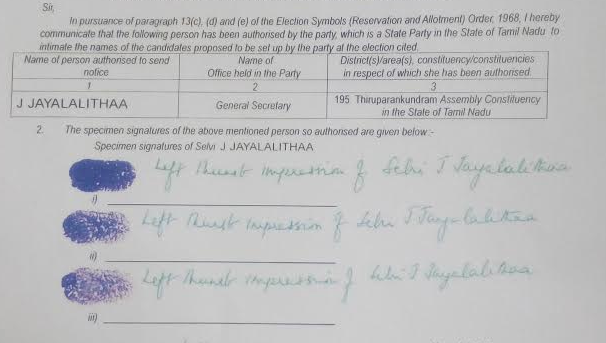 Sir,
In pursuance of paragraph 13(c), (d) and (e) of the Election Symbols (Reservation and Allotment) Order, 1968, I hereby
communicate that the following person has been authorised by the party, which is a State Party in the State of Tamil Nadu to
intimate the names of the candidates proposed to be set up by the party at the election cited.
Name of person authorised to send notice
Name of Office held in the Party
District(s)/area(s), constituency/constituencies in respect of which she has been authorised.
1 2 3
J JAYALALITHAA
General Secretary
195 Thiruparankundram Assembly Constituency in the State of Tamil Nadu
2. The specimen signatures of the above mentioned person so authorised are given below:-
Specimen signatures of Selvi J JAYALALITHAA
Left Thumb impression of Selvi J Jayalalithaa
i)
Left Thumb impression of Selvi J Jayalalithaa
ii)
Left Thumb impression of Selvi J Jayalalithaa
iii)